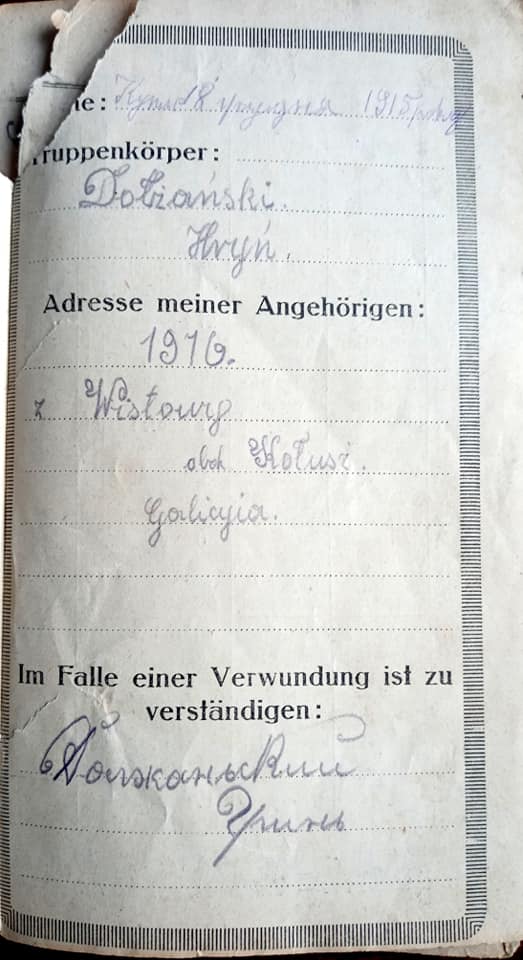 me: грудня 1915 року
Truppenkörper:
Dołżański.
Hryń.
Adresse meiner Angehörigen:
1916.
z Wistowy
obok Kołusz.
Galicyia.
Im Falle einer Verwundung ist zu
verständigen:
Должаньский
Гринь